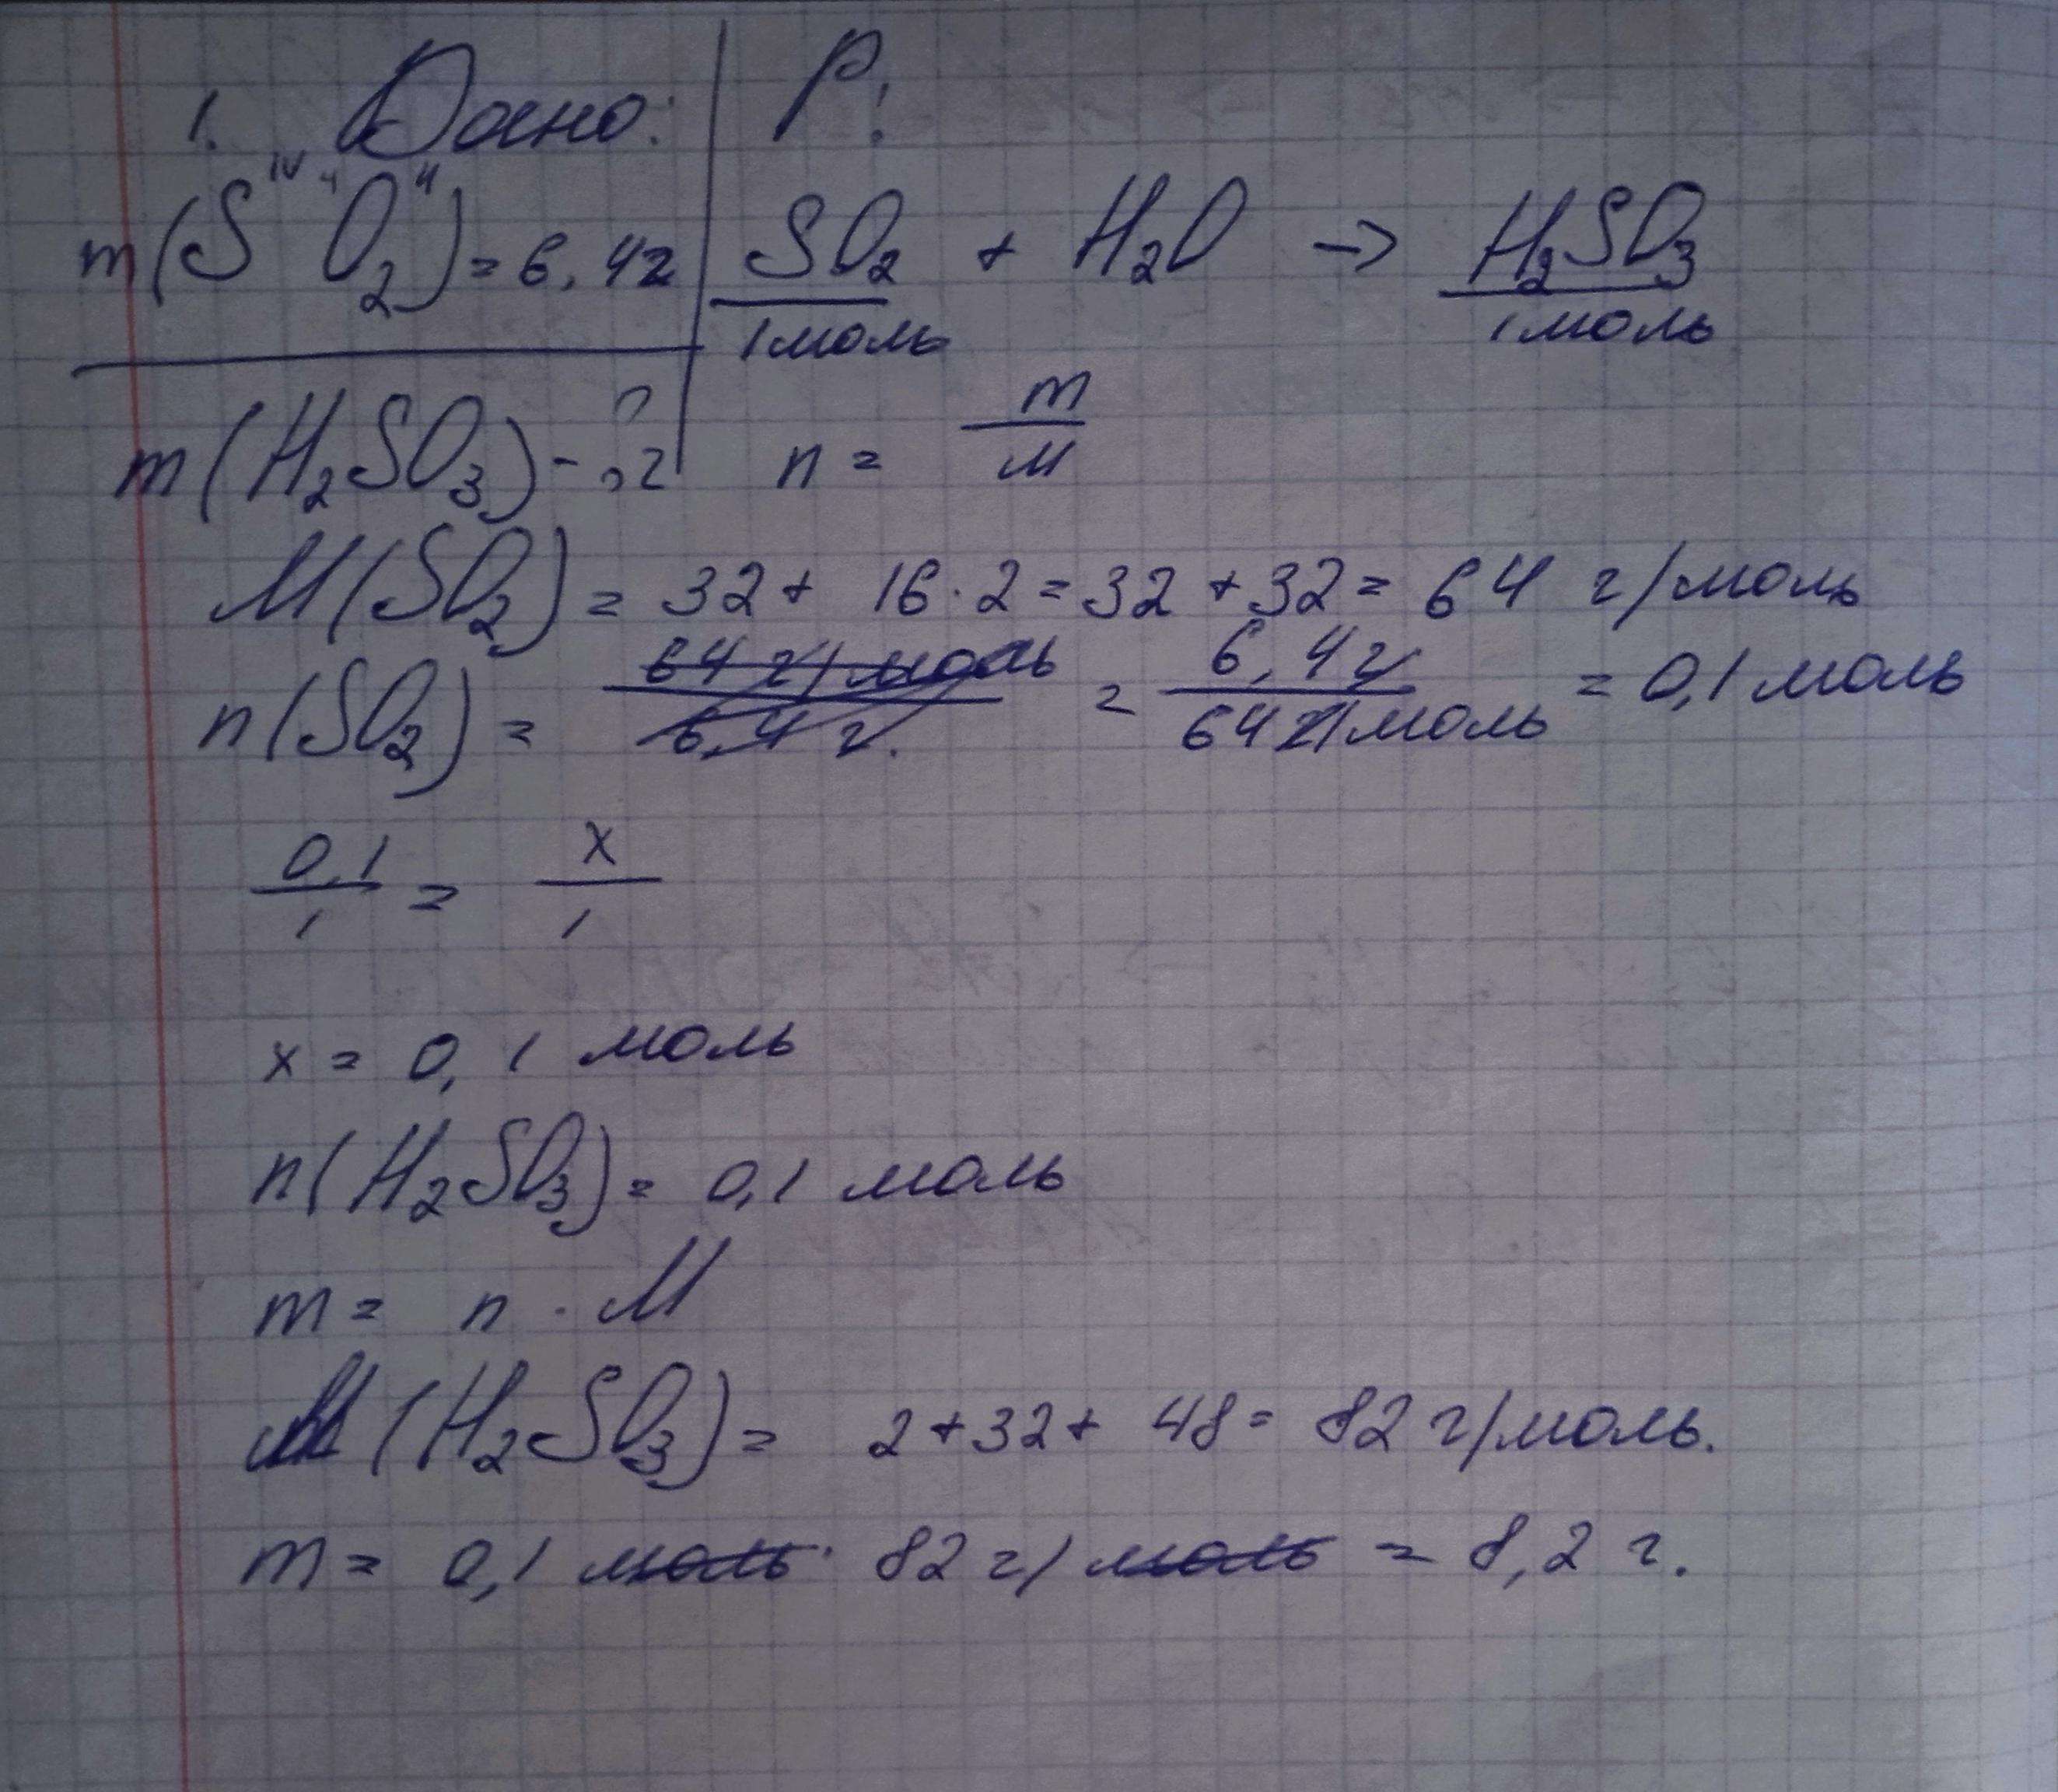 1. Дано: Р:
m(S^IV O₂^II) = 6,4г SO₂ + H₂O → H₂SO₃
1моль 1моль
m(H₂SO₃) - ? г n = m/M
M(SO₂) = 32 + 16 · 2 = 32 + 32 = 64 г/моль
n(SO₂) = 64 г/моль/6,4 г. = 6,4г/64 г/моль = 0,1 моль
0,1/1 = x/1
x = 0,1 моль
n(H₂SO₃) = 0,1 моль
m = n · M
M(H₂SO₃) = 2 + 32 + 48 = 82 г/моль.
m = 0,1 моль · 82 г/моль = 8,2 г.